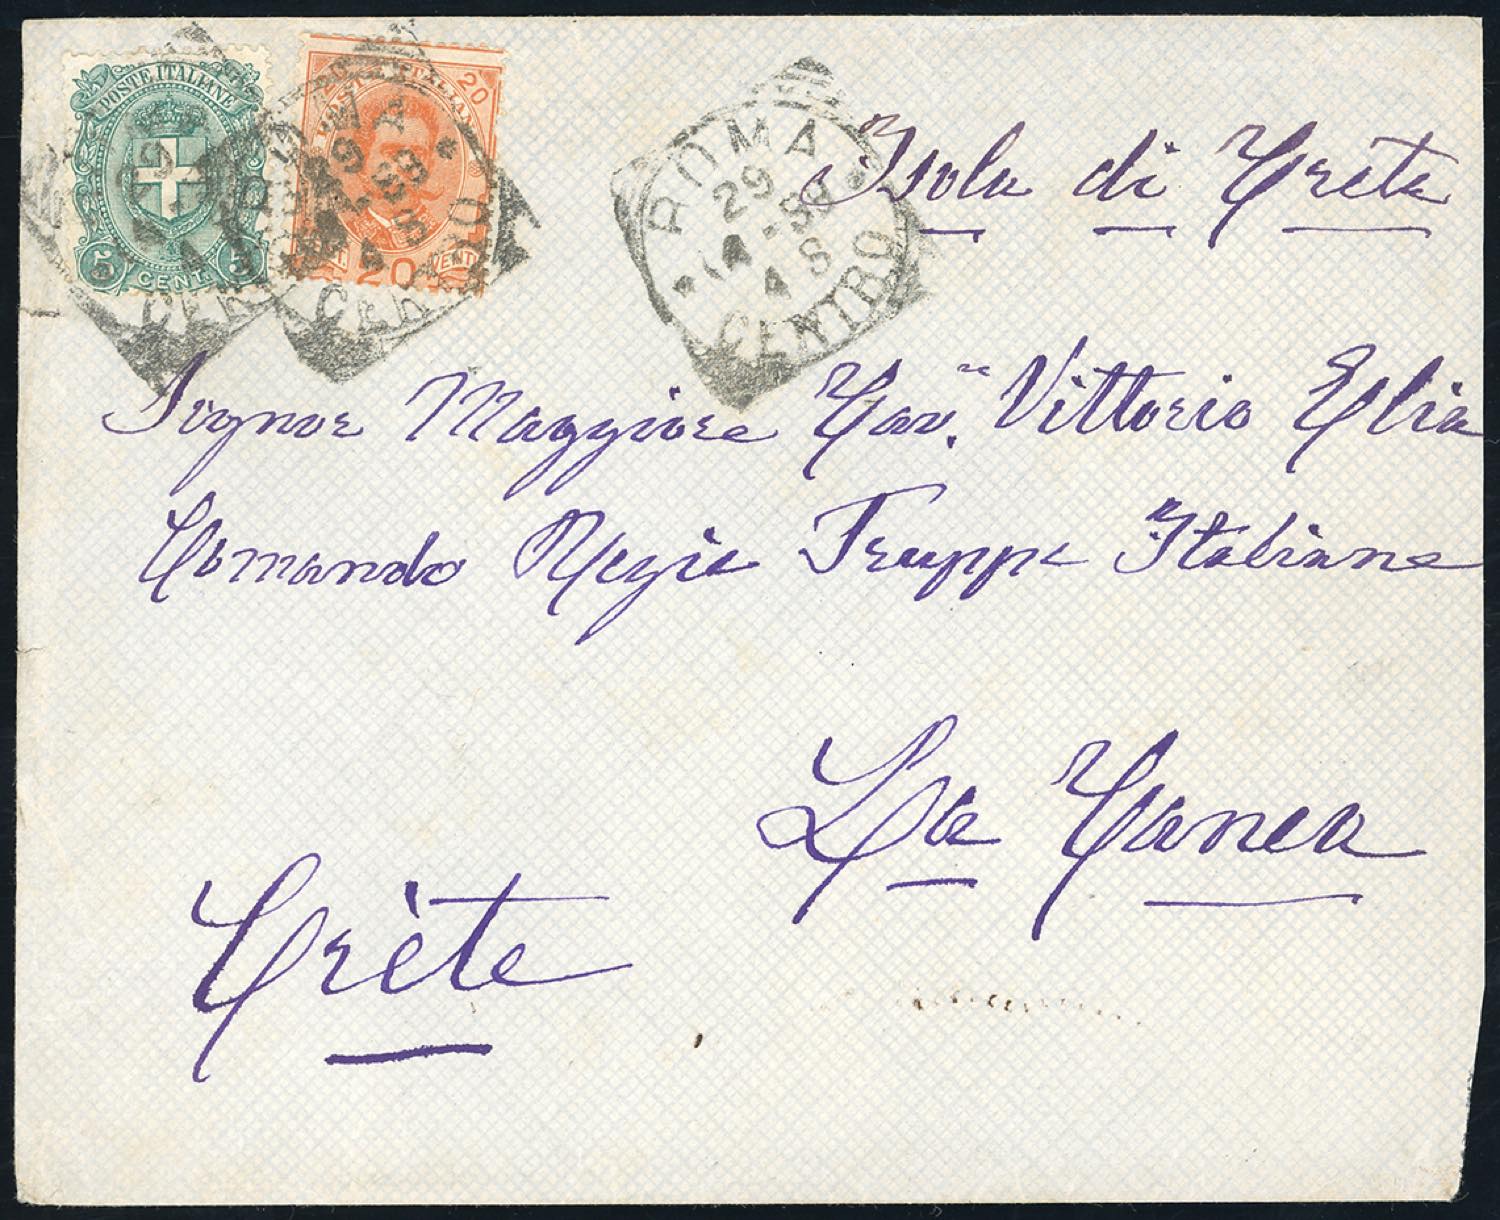 POSTE ITALIANE
5 CENT. 5
20 20
POSTE ITALIANE
20
ROMA
29
4 S
CENTRO
Isola di Creta
Signor Maggiore Cav. Vittorio Elia
Comando Regie Truppe Italiane
La Canea
Crète